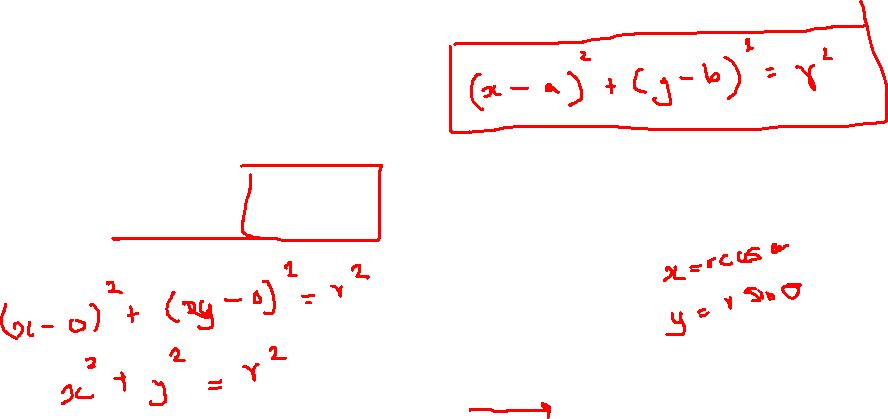 (x - a)² + (y - b)² = r²
(x - 0)² + (xy - 0)² = r²
x² + y² = r²
x = r cos θ
y = r sin θ